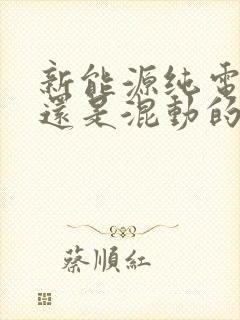 新能源纯電
還是混動的
蔡順紅